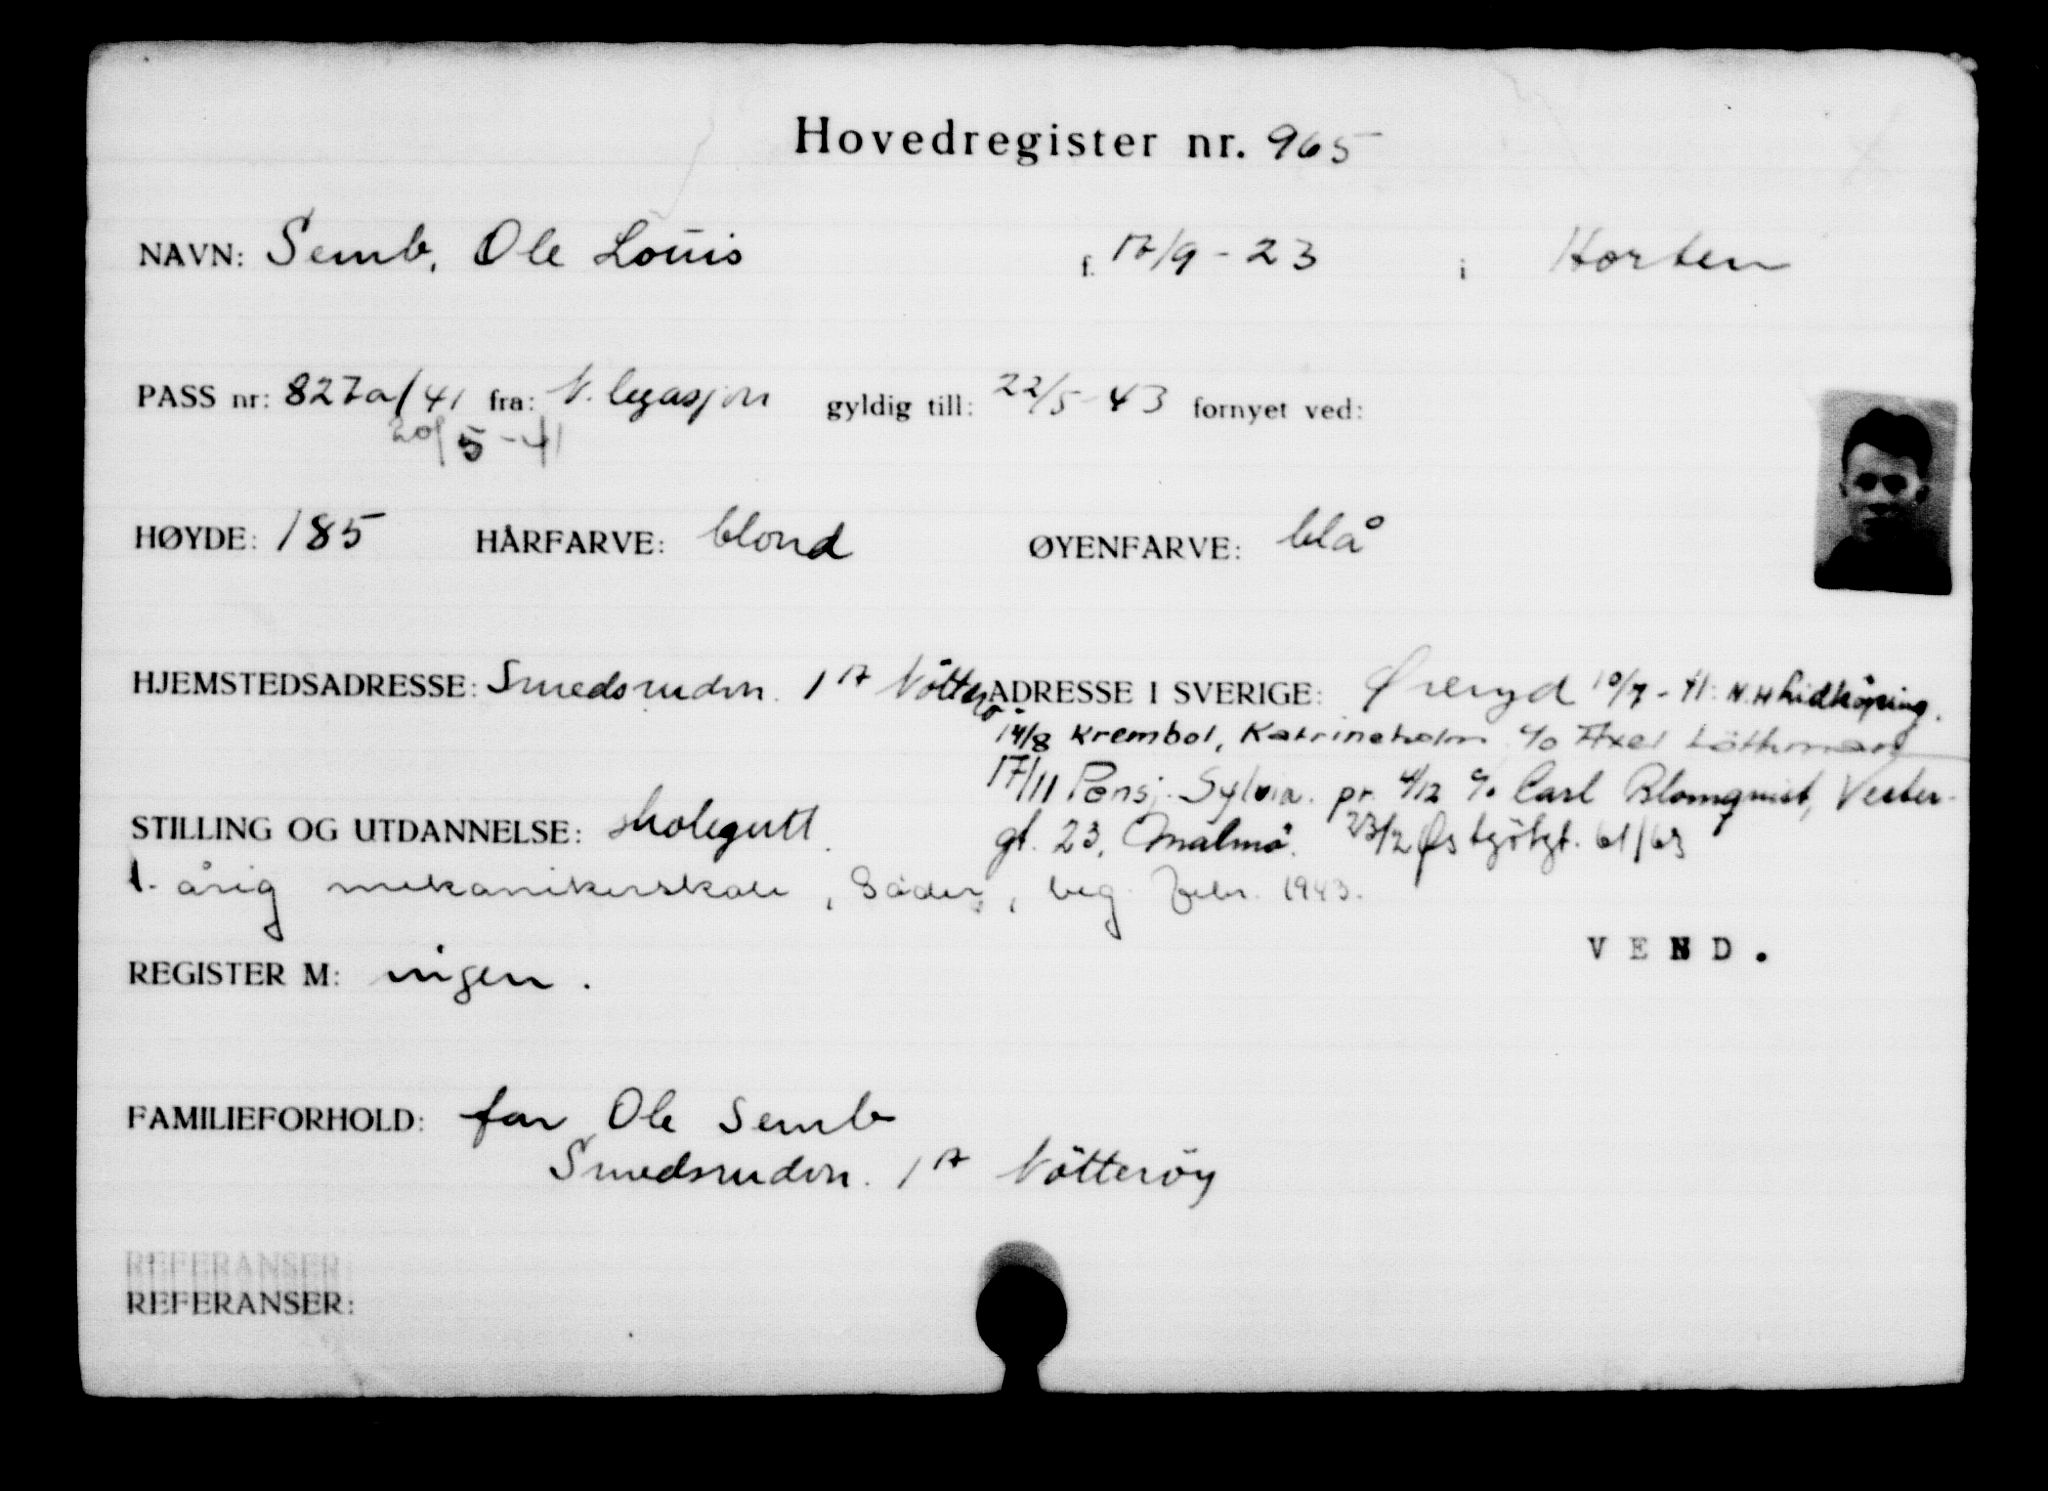 Hovedregister nr. 965
NAVN: Semb, Ole Louis f. 17/9 - 23 i Horten
PASS nr: 827a/41 fra: N. legasjon gyldig till: 22/5 - 43 fornyet ved:
20/5 - 41
HØYDE: 185 HÅRFARVE: blond ØYENFARVE: blå
HJEMSTEDSADRESSE: Smedsrudvn. 1A Nötterö ADRESSE I SVERIGE: Øreryd 10/7 - 41: N.H Lidköping.
14/8 Krembol, Katrineholm c/o Axel
17/11 Pensj. Sylvia. pr. 4/12 c/o Carl Blomquist, Vester-
STILLING OG UTDANNELSE: skolegutt. gt. 23, Malmö. 23/2 Østgötgt. 61/63
1-årig mekanikerskole, beg. febr. 1943.
VEND.
REGISTER M: ingen.
FAMILIEFORHOLD: far Ole Semb
Smedsrudvn. 1A Nötteröy
REFERANSER:
REFERANSER: